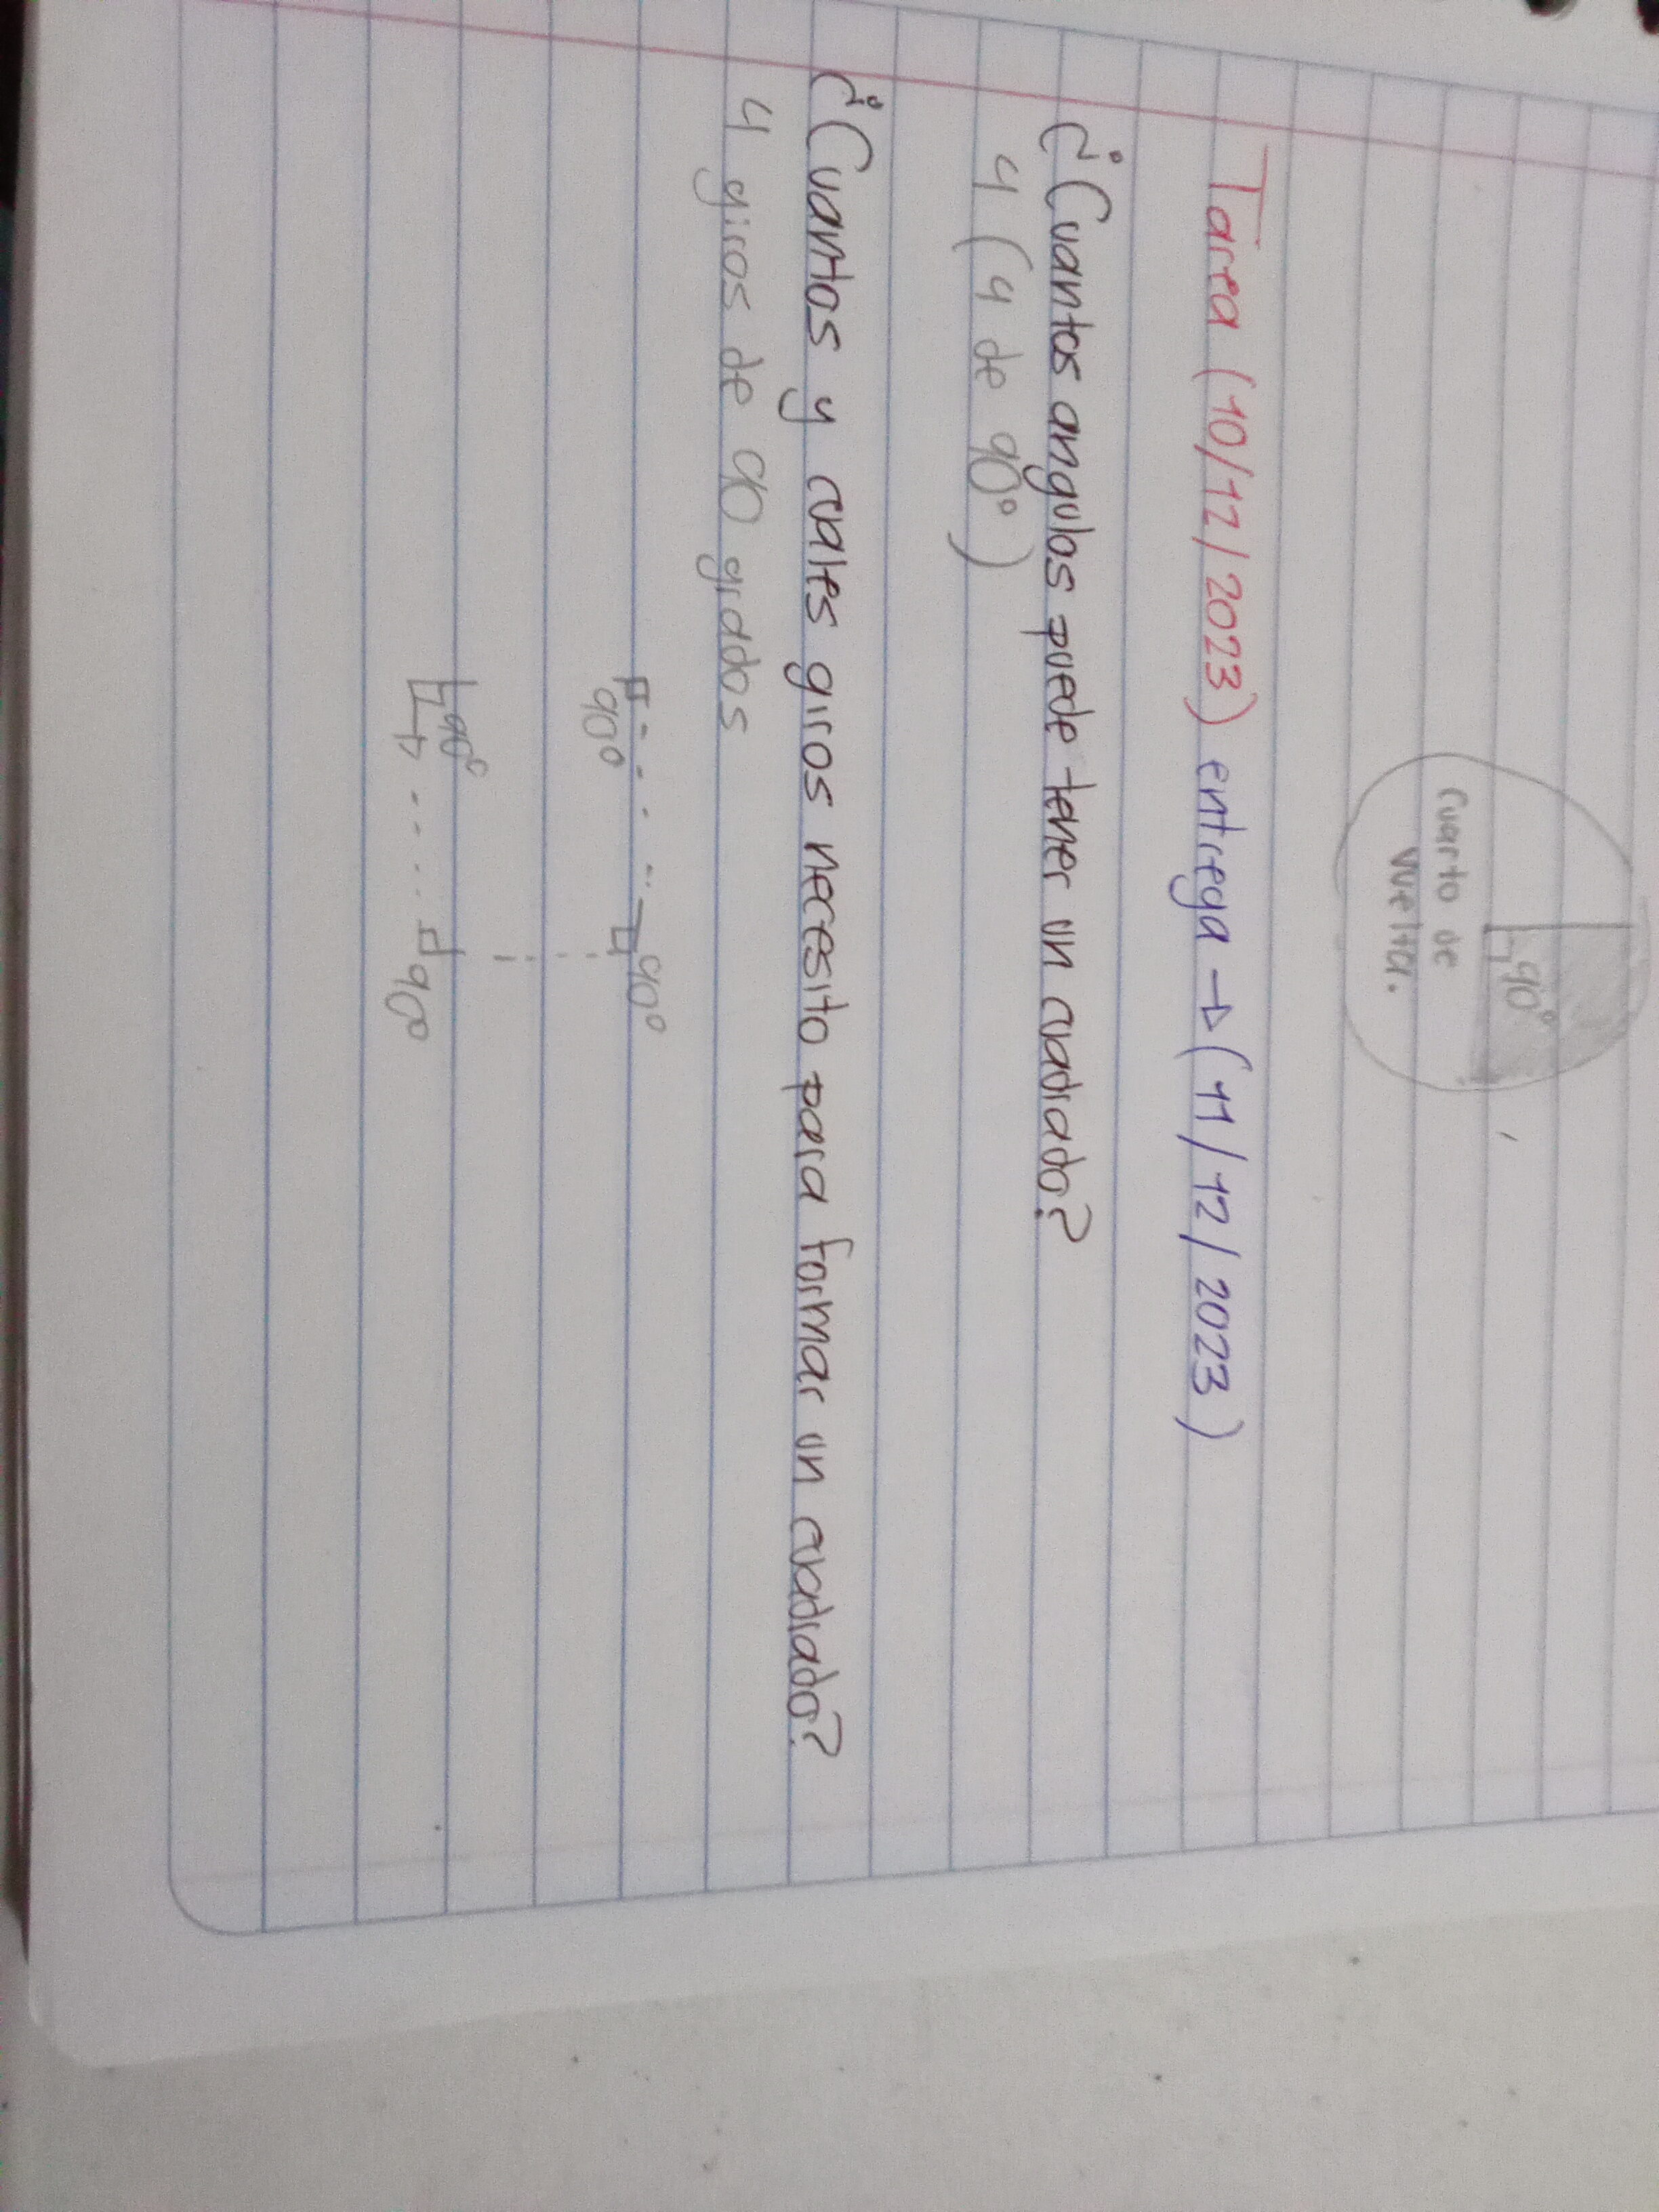 90°
cuarto de
vuelta.
Tarea (10/12/2023) entrega → (11/12/2023)
¿Cuantos angulos puede tener un cuadrado?
4 (4 de 90°)
¿Cuantos y cuales giros necesito para formar un cuadrado?
4 giros de 90 grados
90° 90°
90° 90°